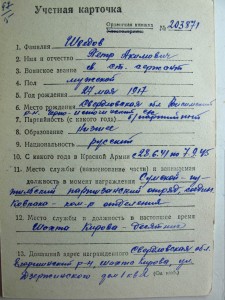 Учетная карточка
Орденская книжка № 203871
1. Фамилия Шведов
2. Имя и отчество Петр Акимович
3. Воинское звание сержант
4. Пол мужской
5. Год рождения 27 мая 1917
6. Место рождения Свердловская обл.
7. Партийность (с какого года) б/партийный
8. Образование Низшее
9. Национальность русский
10. С какого года в Красной Армии с 23.6.41 по 7.9.45
11. Место службы (наименование части) и занимаемая
должность в момент награждения Сумской
партизанский отряд
Ковпака - ком-р отделения
12. Место службы и должность в настоящее время
Шахта Кирова - десятник
13. Домашний адрес награжденного Свердловская обл.
Егоршинский р-н, шахта Кирова, ул.
Дзержинского дом 1 кв 2